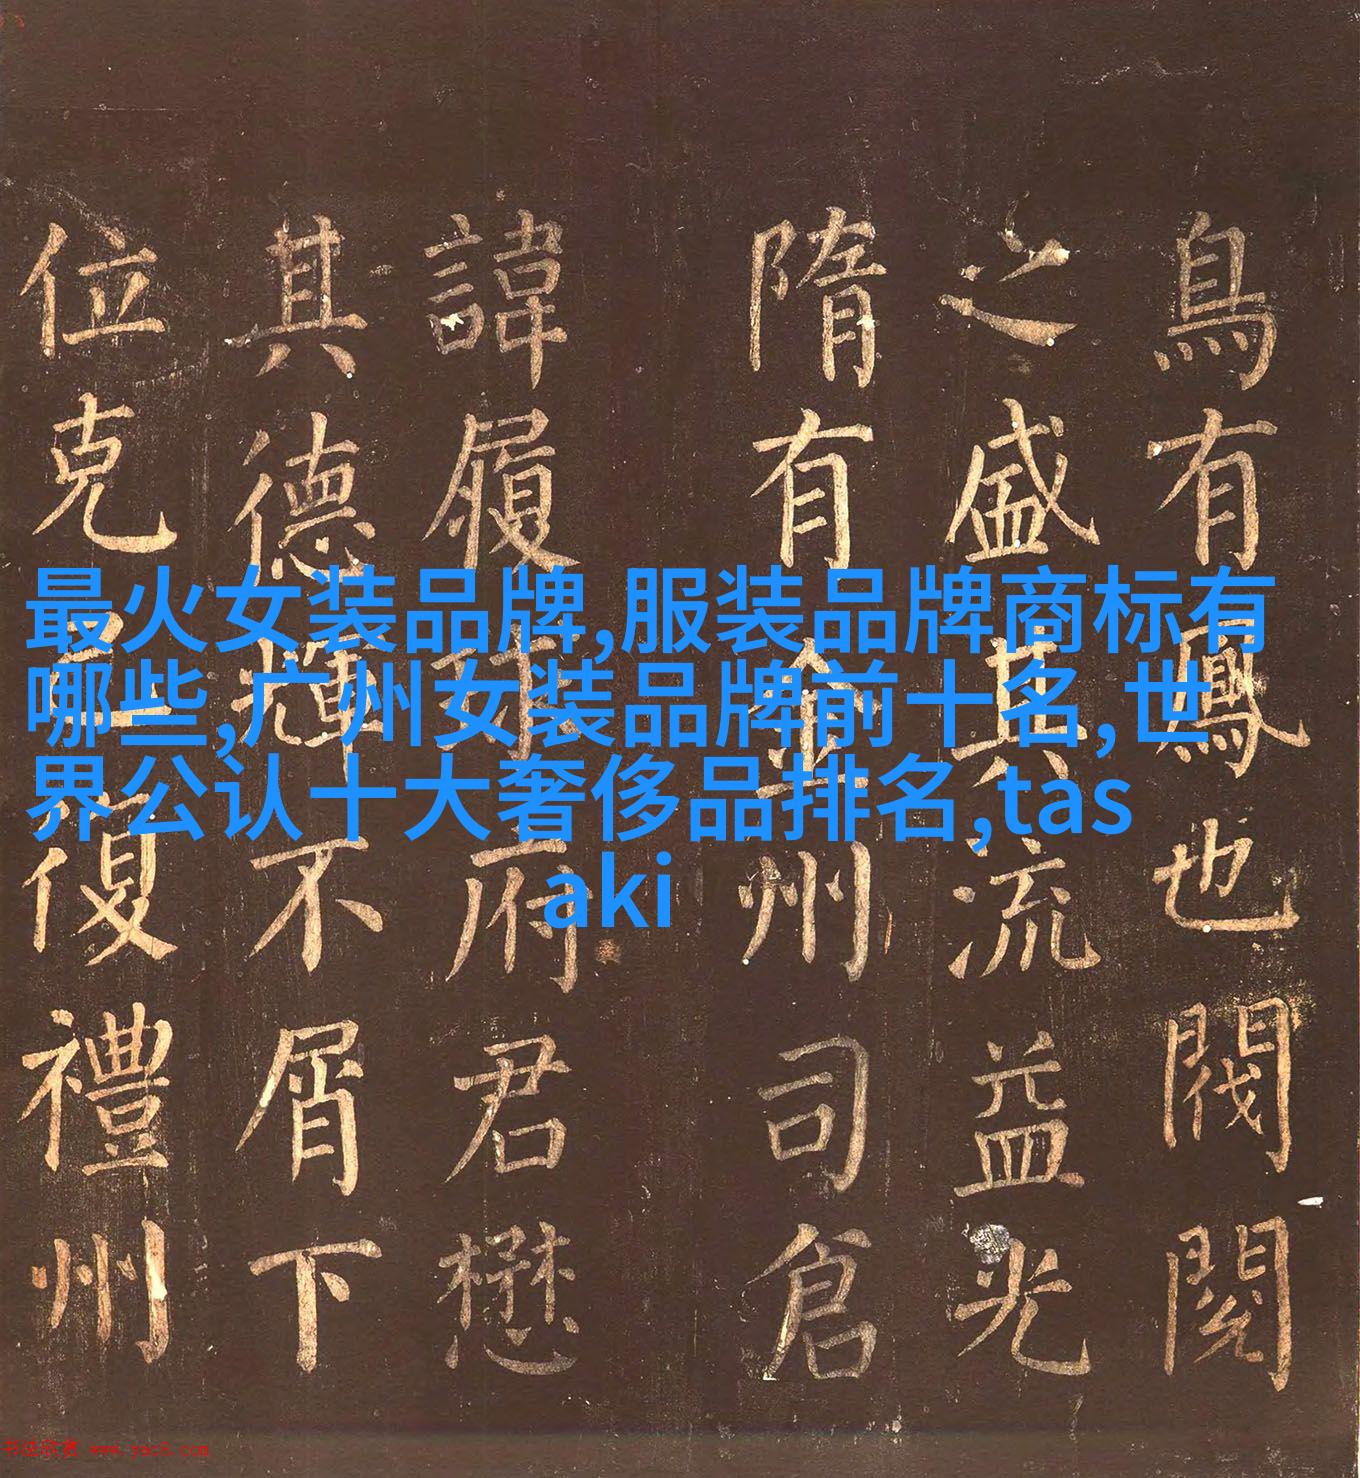 鳥有鳳也閥閱
之盛其流益光
隋有金州司倉
諱履府君懋
其德輝不屑下
位克己復禮州
最火女装品牌,服装品牌商标有
哪些,广州女装品牌前十名,世
界公认十大奢侈品排名,tas
aki
书法欣赏 www.yac8.com